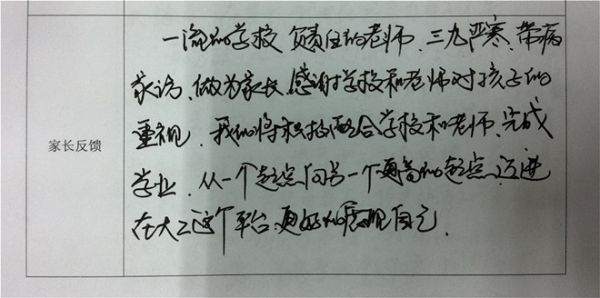 家长反馈
一流的学校 负责任的老师、三九严寒、带病
家访、做为家长、感谢学校和老师对孩子的
重视、我们将积极配合学校和老师、完成
学业、从一个起点向另一个更高的起点、迈进
在大二这个平台、更好的展现自己.